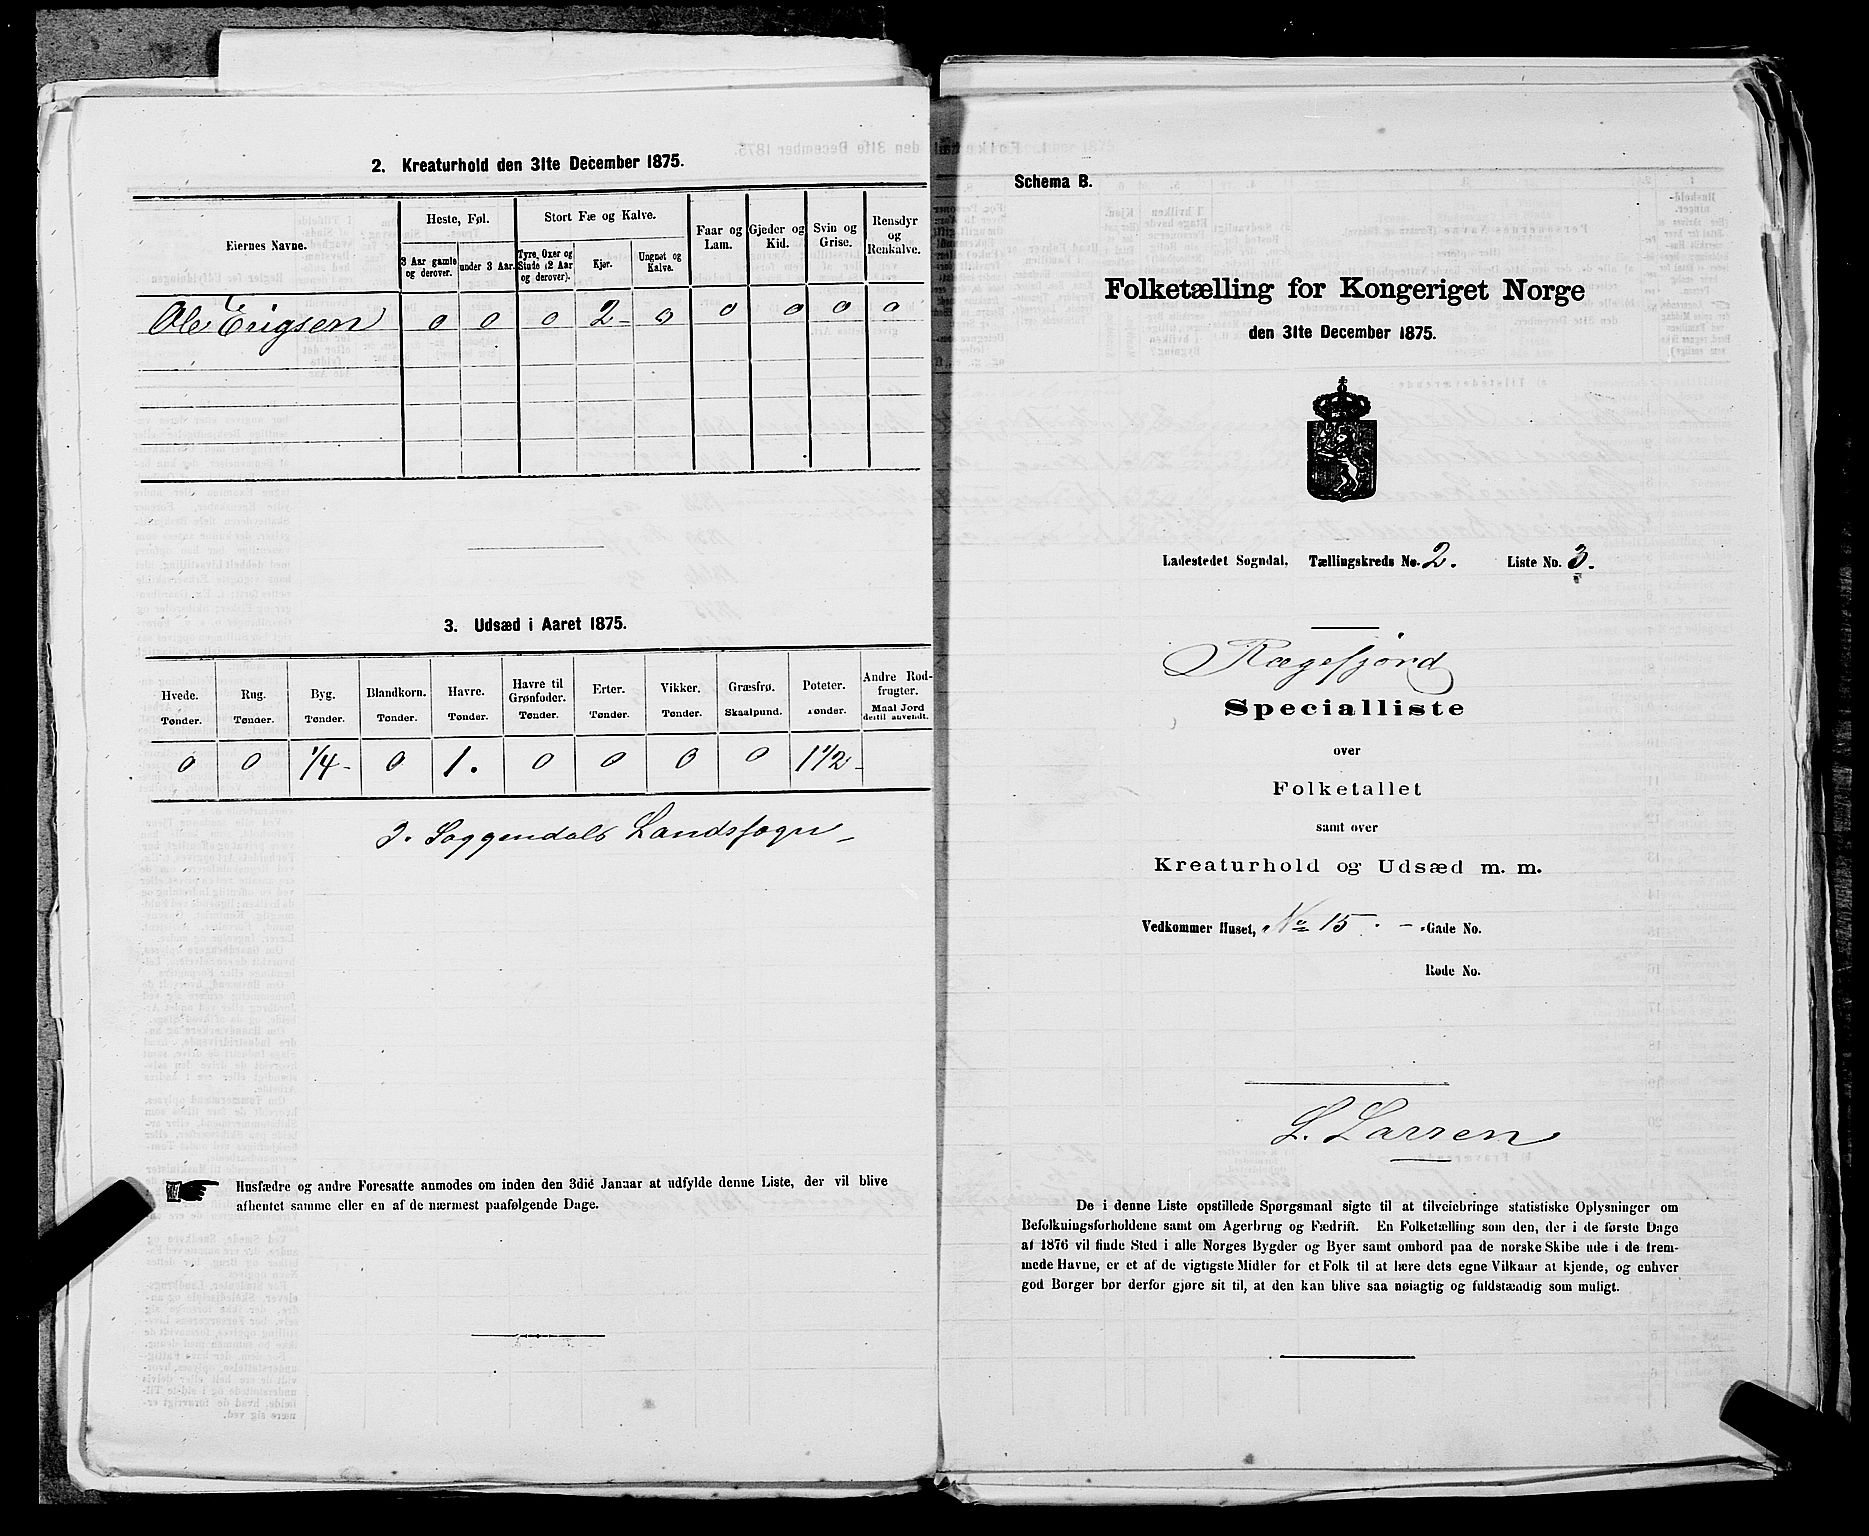 2. Kreaturhold den 31te December 1875.
Eiernes Navne.
Heste, Føl.
3 Aar gamle og derover.
under 3 Aar.
Stort Fæ og Kalve.
Tyre, Oxer og Stude (2 Aar og derover).
Kjør.
Ungnøt og Kalve.
Faar og Lam.
Gjeder og Kid.
Svin og Grise.
Rensdyr og Renkalve.
Ole Erigsen 0 0 0 2 0 0 0 0 0
3. Udsæd i Aaret 1875.
Hvede. Tønder.
Rug. Tønder.
Byg. Tønder.
Blandkorn. Tønder.
Havre. Tønder.
Havre til Grønfoder. Tønder.
Erter. Tønder.
Vikker. Tønder.
Græsfrø. Skaalpund.
Poteter. Tønder.
Andre Rodfrugter. Maal Jord dertil anvendt.
0 0 1/4 0 1. 0 0 0 0 1 1/2
Soggendals Landssogn
Husfædre og andre Foresatte anmodes om inden den 3die Januar at udfylde denne Liste, der vil blive
afhentet samme eller en af de nærmest paafølgende Dage.
Schema B.
Folketælling for Kongeriget Norge
den 31te December 1875.
Ladestedet Sogndal. Tællingskreds No. 2. Liste No. 3.
Rægefjord
Specialliste
over
Folketallet
samt over
Kreaturhold og Udsæd m. m.
Vedkommer Huset, No 15. - Gade No.
Rode No.
L. Larsen
De i denne Liste opstillede Spørgsmaal sigte til at tilveiebringe statistiske Oplysninger om
Befolkningsforholdene samt om Agerbrug og Fædrift. En Folketælling som den, der i de første Dage
af 1876 vil finde Sted i alle Norges Bygder og Byer samt ombord paa de norske Skibe ude i de frem-
mede Havne, er et af de vigtigste Midler for et Folk til at lære dets egne Vilkaar at kjende, og enhver
god Borger bør derfor gjøre sit til, at den kan blive saa nøiagtig og fuldstændig som muligt.